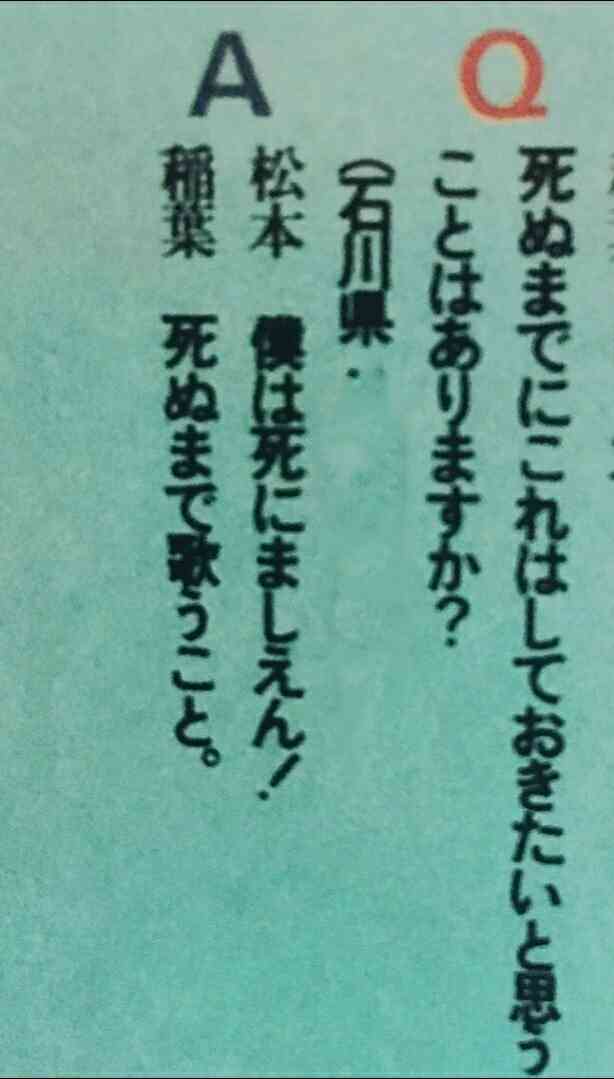 Q
死ぬまでにこれはしておきたいと思う
ことはありますか？
（石川県・
A
松本　僕は死にましえん！
稲葉　死ぬまで歌うこと。